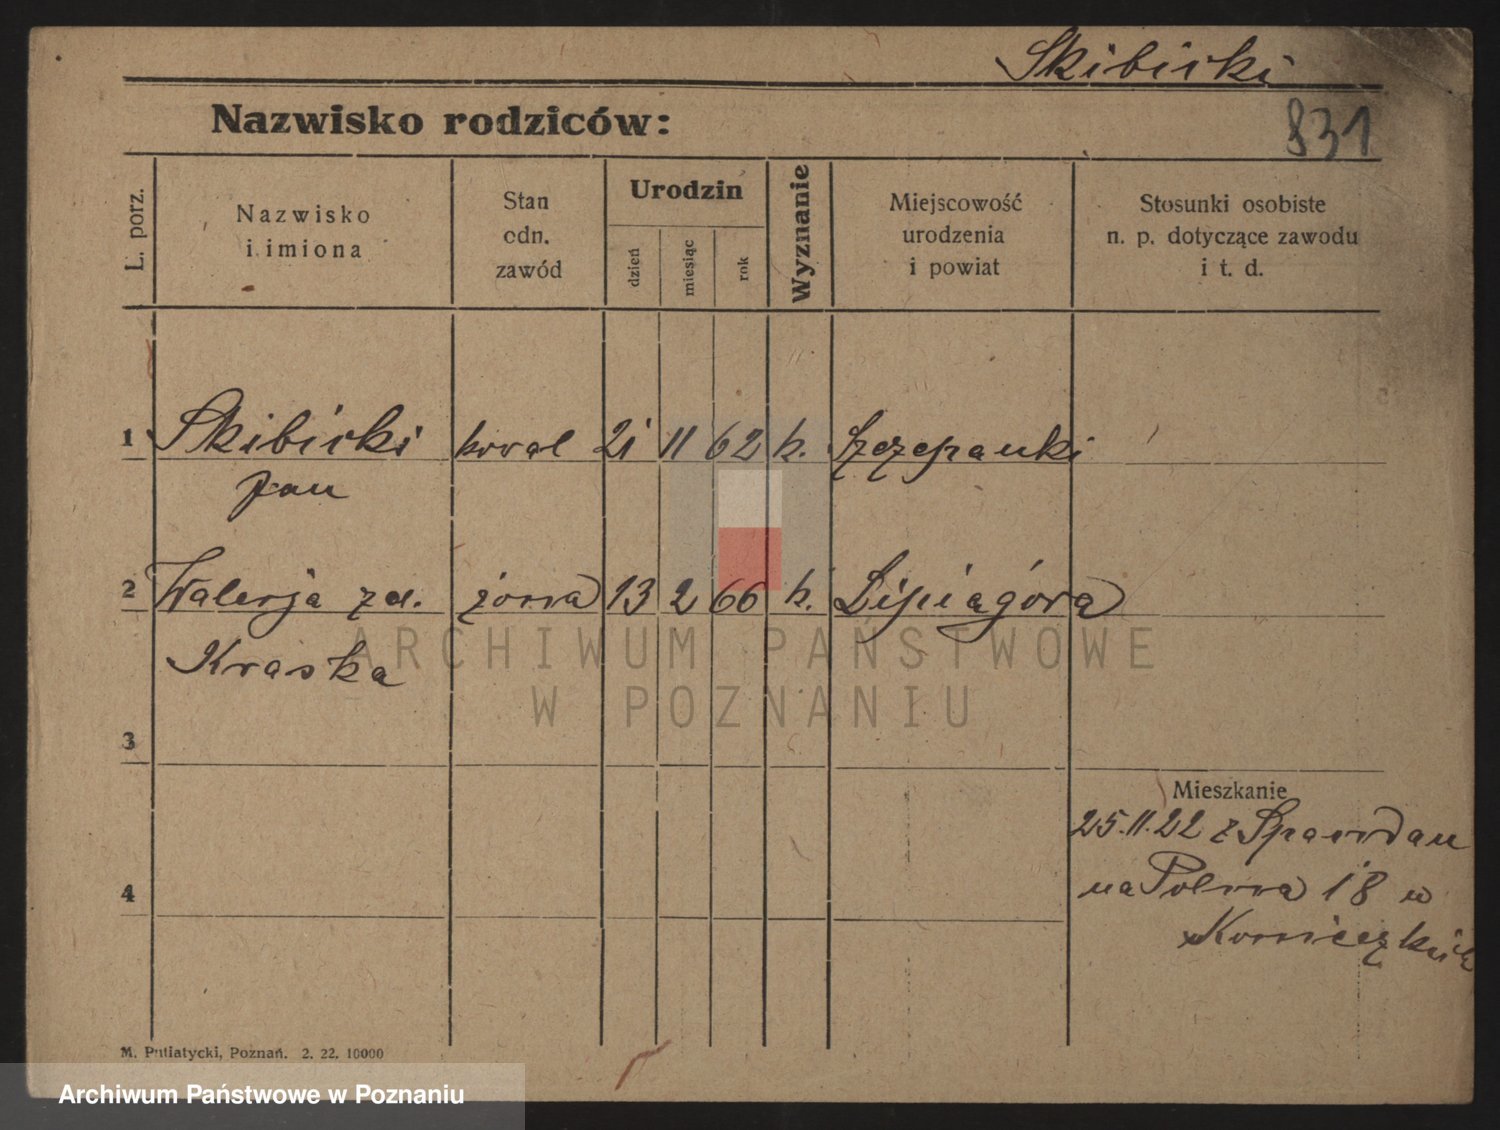 Skibicki
Nazwisko rodziców:
831
L. porz.
Nazwisko
i imiona
Stan
odn.
zawód
Urodzin
dzień
miesiąc
rok
Wyznanie
Miejscowość
urodzenia
i powiat
Stosunki osobiste
n. p. dotyczące zawodu
i t. d.
1 Skibicki kowal 21 11 62 k. Szczepanki
Jan
2 Walerja zd. żona 13 2 66 k. Lipiagóra
Kraska
3
4
Mieszkanie
25.11.22 z Spandau
na Polna 18 u
M. Putiatycki, Poznań. 2. 22. 10000
ARCHIWUM PAŃSTWOWE
W POZNANIU
Archiwum Państwowe w Poznaniu